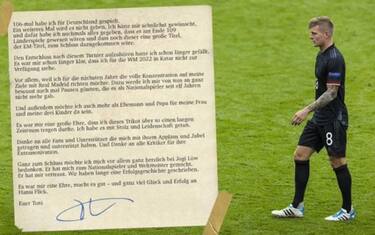 106-mal habe ich für Deutschland gespielt.
Ein weiteres Mal wird es nicht geben. Ich hätte mir sehnlichst gewünscht,
und dafür habe ich nochmals alles gegeben, dass es am Ende 109
Länderspiele gewesen wären und dass noch dieser eine große Titel,
der EM-Titel, zum Schluss dazugekommen wäre.
Den Entschluss nach diesem Turnier aufzuhören hatte ich schon länger gefällt.
Es war mir schon länger klar, dass ich für die WM 2022 in Katar nicht zur
Verfügung stehe.
Vor allem, weil ich für die nächsten Jahre die volle Konzentration auf meine
Ziele mit Real Madrid richten möchte. Dazu werde ich mir von nun an ganz
bewusst auch mal Pausen gönnen, die es als Nationalspieler seit elf Jahren
nicht mehr gab.
Und außerdem möchte ich auch mehr als Ehemann und Papa für meine Frau
und meine drei Kinder da sein.
Es war mir eine große Ehre, dass ich dieses Trikot über so einen langen
Zeitraum tragen durfte. Ich habe es mit Stolz und Leidenschaft getan.
Danke an alle Fans und Unterstützer die mich mit ihrem Applaus und Jubel
getragen und unterstützt haben. Und Danke an alle Kritiker für ihre
Extramotivation.
Ganz zum Schluss möchte ich mich vor allem ganz herzlich bei Jogi Löw
bedanken. Er hat mich zum Nationalspieler und Weltmeister gemacht.
Er hat mir vertraut. Wir haben lange eine Erfolgsgeschichte geschrieben.
Es war mir eine Ehre, machs es gut – und ganz viel Glück und Erfolg an
Hansi Flick.
Euer Toni
8